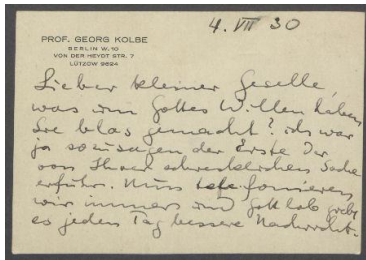 4. VII 30
PROF. GEORG KOLBE
BERLIN W. 10
VON DER HEYDT STR. 7
LÜTZOW 9624
Lieber kleiner Geselle,
was um Gottes Willen haben
Sie blos gemacht? ich war
ja sozusagen der Erste der
von Ihrer schrecklichen Sache
erfuhr. Nun telefonieren
wir immer und gottlob giebt
es jeden Tag bessere Nachricht.